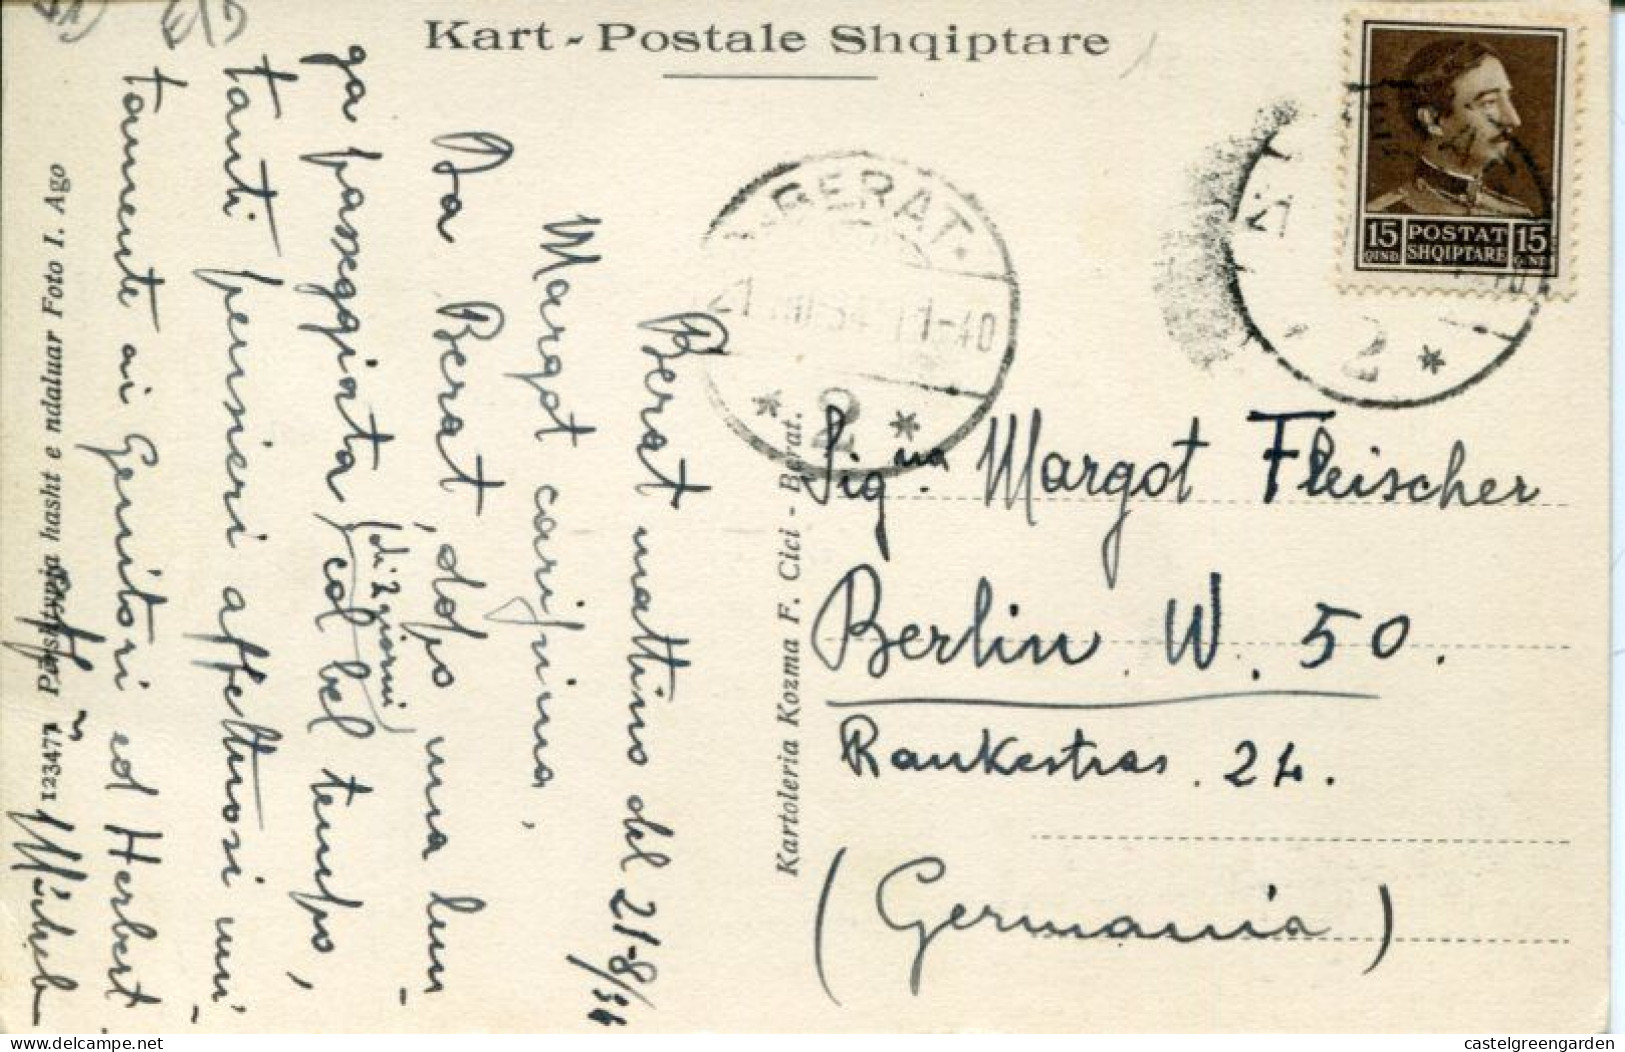 Kart - Postale Shqiptare
15 POSTAT 15
QIND SHQIPTARE QIND
BERAT
21 VIII 34 11-40
* 2 *
21
2 *
Berat mattino del 21-8/34
Margot carissima,
Da Berat, dopo una lun-
ga passeggiata (di 2 giorni) col bel tempo,
tanti pensieri affettuosi uni-
tamente ai Genitori ed Herbert.
123477 Përshtypja hasht e ndaluar Foto I. Ago
Kartoleria Kozma F. Cici - Berat.
Sig.na Margot Fleischer
Berlin W. 50.
Rankestras. 24.
(Germania)
castelgreengarden